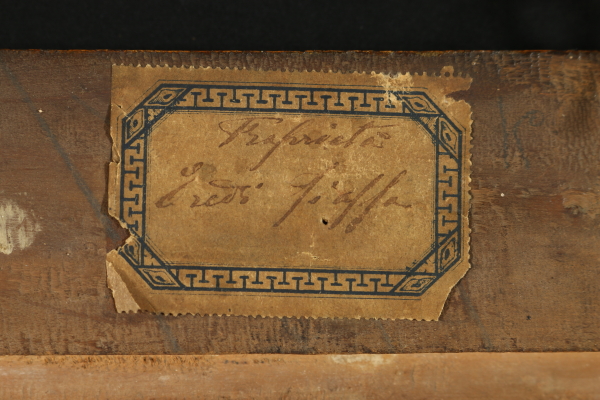 Proprietà
Eredi Fiaffa